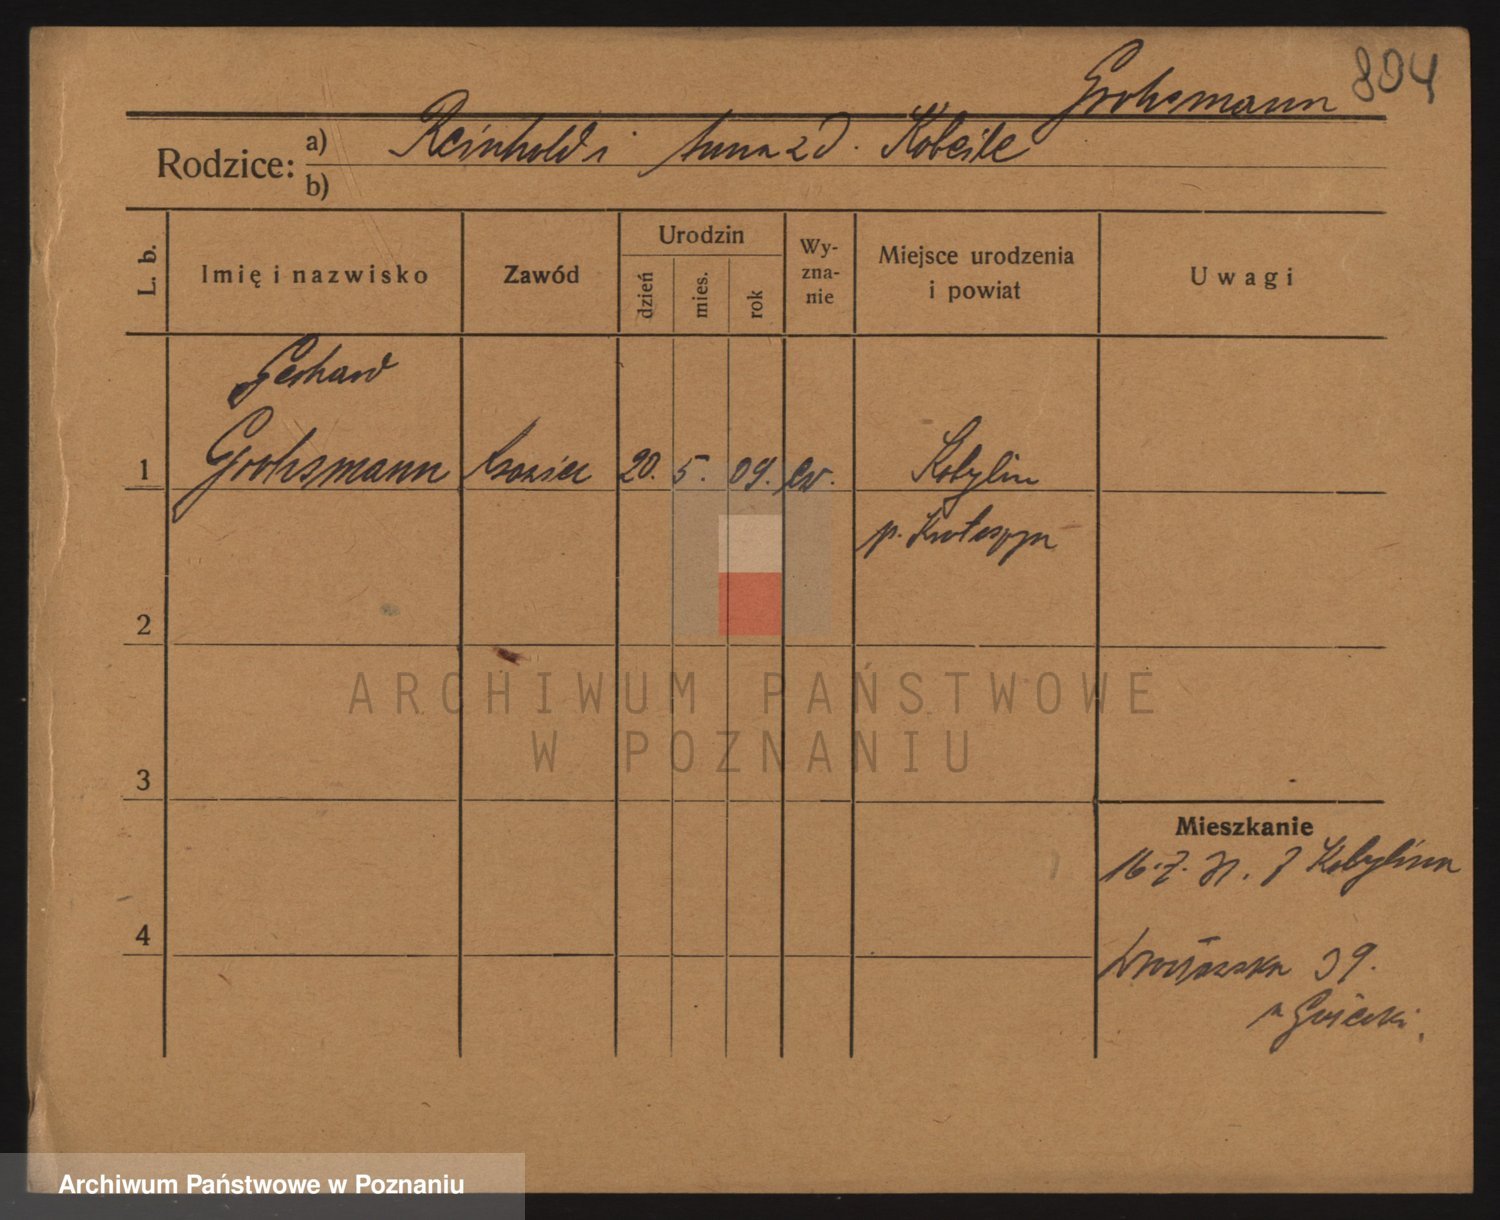 Grohsmann 804
Rodzice: a) Reinhold i Anna zd. Kobeile
b)
L. b. Imię i nazwisko Zawód Urodzin dzień mies. rok Wy-zna-nie Miejsce urodzenia i powiat Uwagi
Gerhard
1 Grohsmann 20. 5. 09. ew. Kobylin
p. Krotoszyn
2
ARCHIWUM PAŃSTWOWE
W POZNANIU
3
Mieszkanie
16. 7. 31. z Kobylina
4
39.
Archiwum Państwowe w Poznaniu